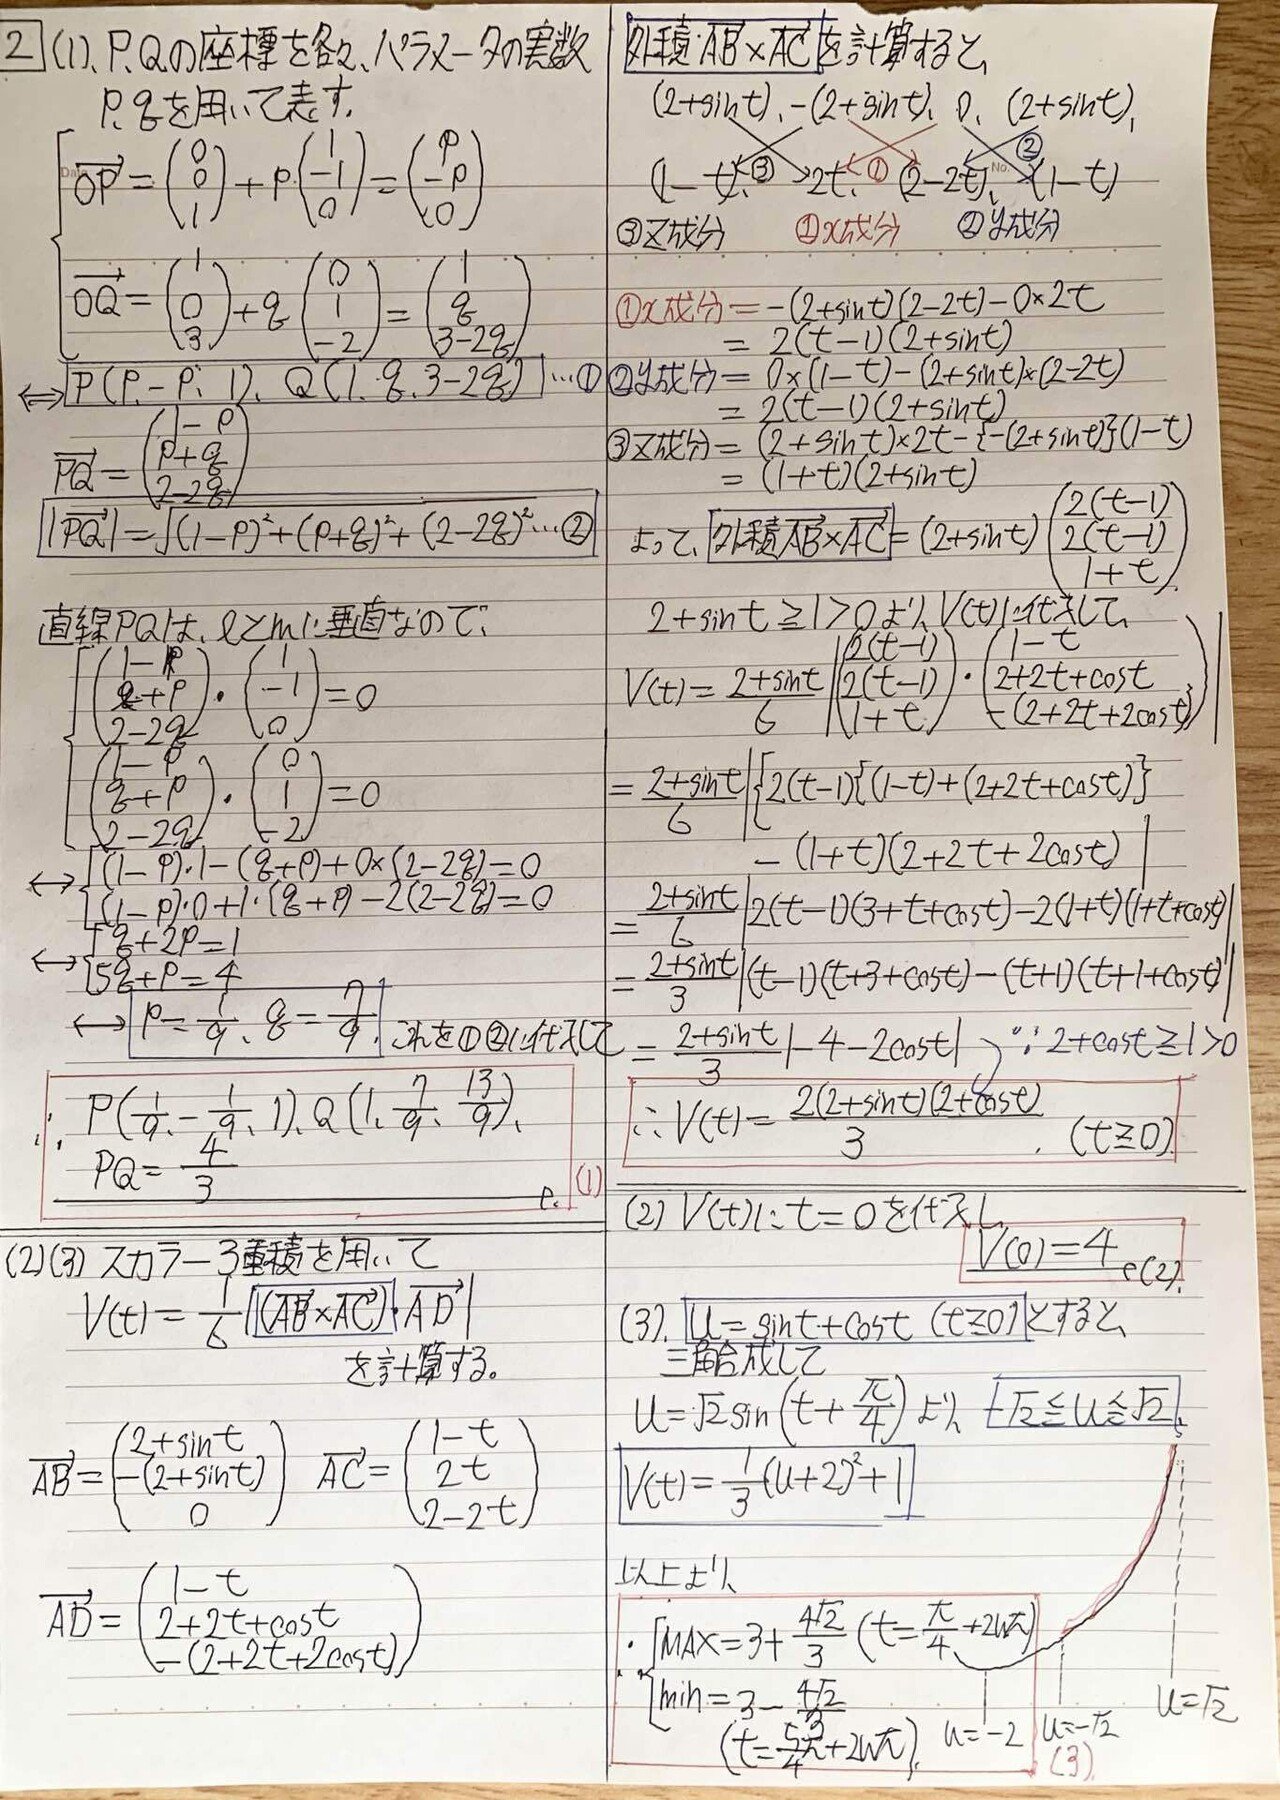 2 (1)、P、Qの座標を各々、パラメータの実数
P、qを用いて表す。
OP = (0 0 1) + p・(1 -1 0) = (p -p 0)
OQ = (1 0 3) + q (0 1 -2) = (1 q 3-2q)
⇔ P(P、-P、1)、Q(1、q、3-2q) …①
PQ = (1-P P+q 2-2q)
|PQ| = √(1-P)²+(P+q)²+(2-2q)² …②
直線PQは、lとmに垂直なので、
(1-P q+P 2-2q)・(1 -1 0) = 0
(1-P q+P 2-2q)・(0 1 -2) = 0
↔ (1-P)・1-(q+P)+0×(2-2q)=0
(1-P)・0+1・(q+P)-2(2-2q)=0
↔ q+2P=1
5q+P=4
↔ P=1/9、q=7/9. これを①②に代入して
∴ P(1/9、-1/9、1)、Q(1、7/9、13/9)、
PQ=4/3
(1)
(2)(3) スカラー3重積を用いて
V(t) = 1/6|(AB×AC)・AD|
を計算する。
AB = (2+sint -(2+sint) 0) AC = (1-t 2t 2-2t)
AD = (1-t 2+2t+cost -(2+2t+2cost))
外積 AB×AC を計算すると、
(2+sint)、-(2+sint)、0、(2+sint)、
(1-t)、③ 2t、① (2-2t)、② (1-t)
③Z成分 ①x成分 ②y成分
①x成分 = -(2+sint)(2-2t)-0×2t
= 2(t-1)(2+sint)
②y成分 = 0×(1-t)-(2+sint)×(2-2t)
= 2(t-1)(2+sint)
③Z成分 = (2+sint)×2t-{-(2+sint)}(1-t)
= (1+t)(2+sint)
よって、外積AB×AC = (2+sint) (2(t-1) 2(t-1) 1+t)
2+sint≧1>0より、V(t)に代入して、
V(t) = 2+sint/6 |(2(t-1) 2(t-1) 1+t)・(1-t 2+2t+cost -(2+2t+2cost))|
= 2+sint/6 |{2(t-1){(1-t)+(2+2t+cost)}
-(1+t)(2+2t+2cost)|
= 2+sint/6 |2(t-1)(3+t+cost)-2(1+t)(1+t+cost)|
= 2+sint/3 |(t-1)(t+3+cost)-(t+1)(t+1+cost)|
= 2+sint/3 |-4-2cost| ∵2+cost≧1>0
∴V(t) = 2(2+sint)(2+cost)/3 . (t≧0)
(2) V(t)に t=0 を代入し
V(0)=4
(2)
(3)、u=sint+cost (t≧0) とすると、
三角合成して
u=√2sin(t+π/4) より -√2≦u≦√2、
V(t)=1/3(u+2)²+1
以上より、
∴ MAX=3+4√2/3 (t=π/4+2nπ)
min=3-4√2/3
(t=5/4π+2nπ)
u=-2 u=-√2 u=√2
(3)